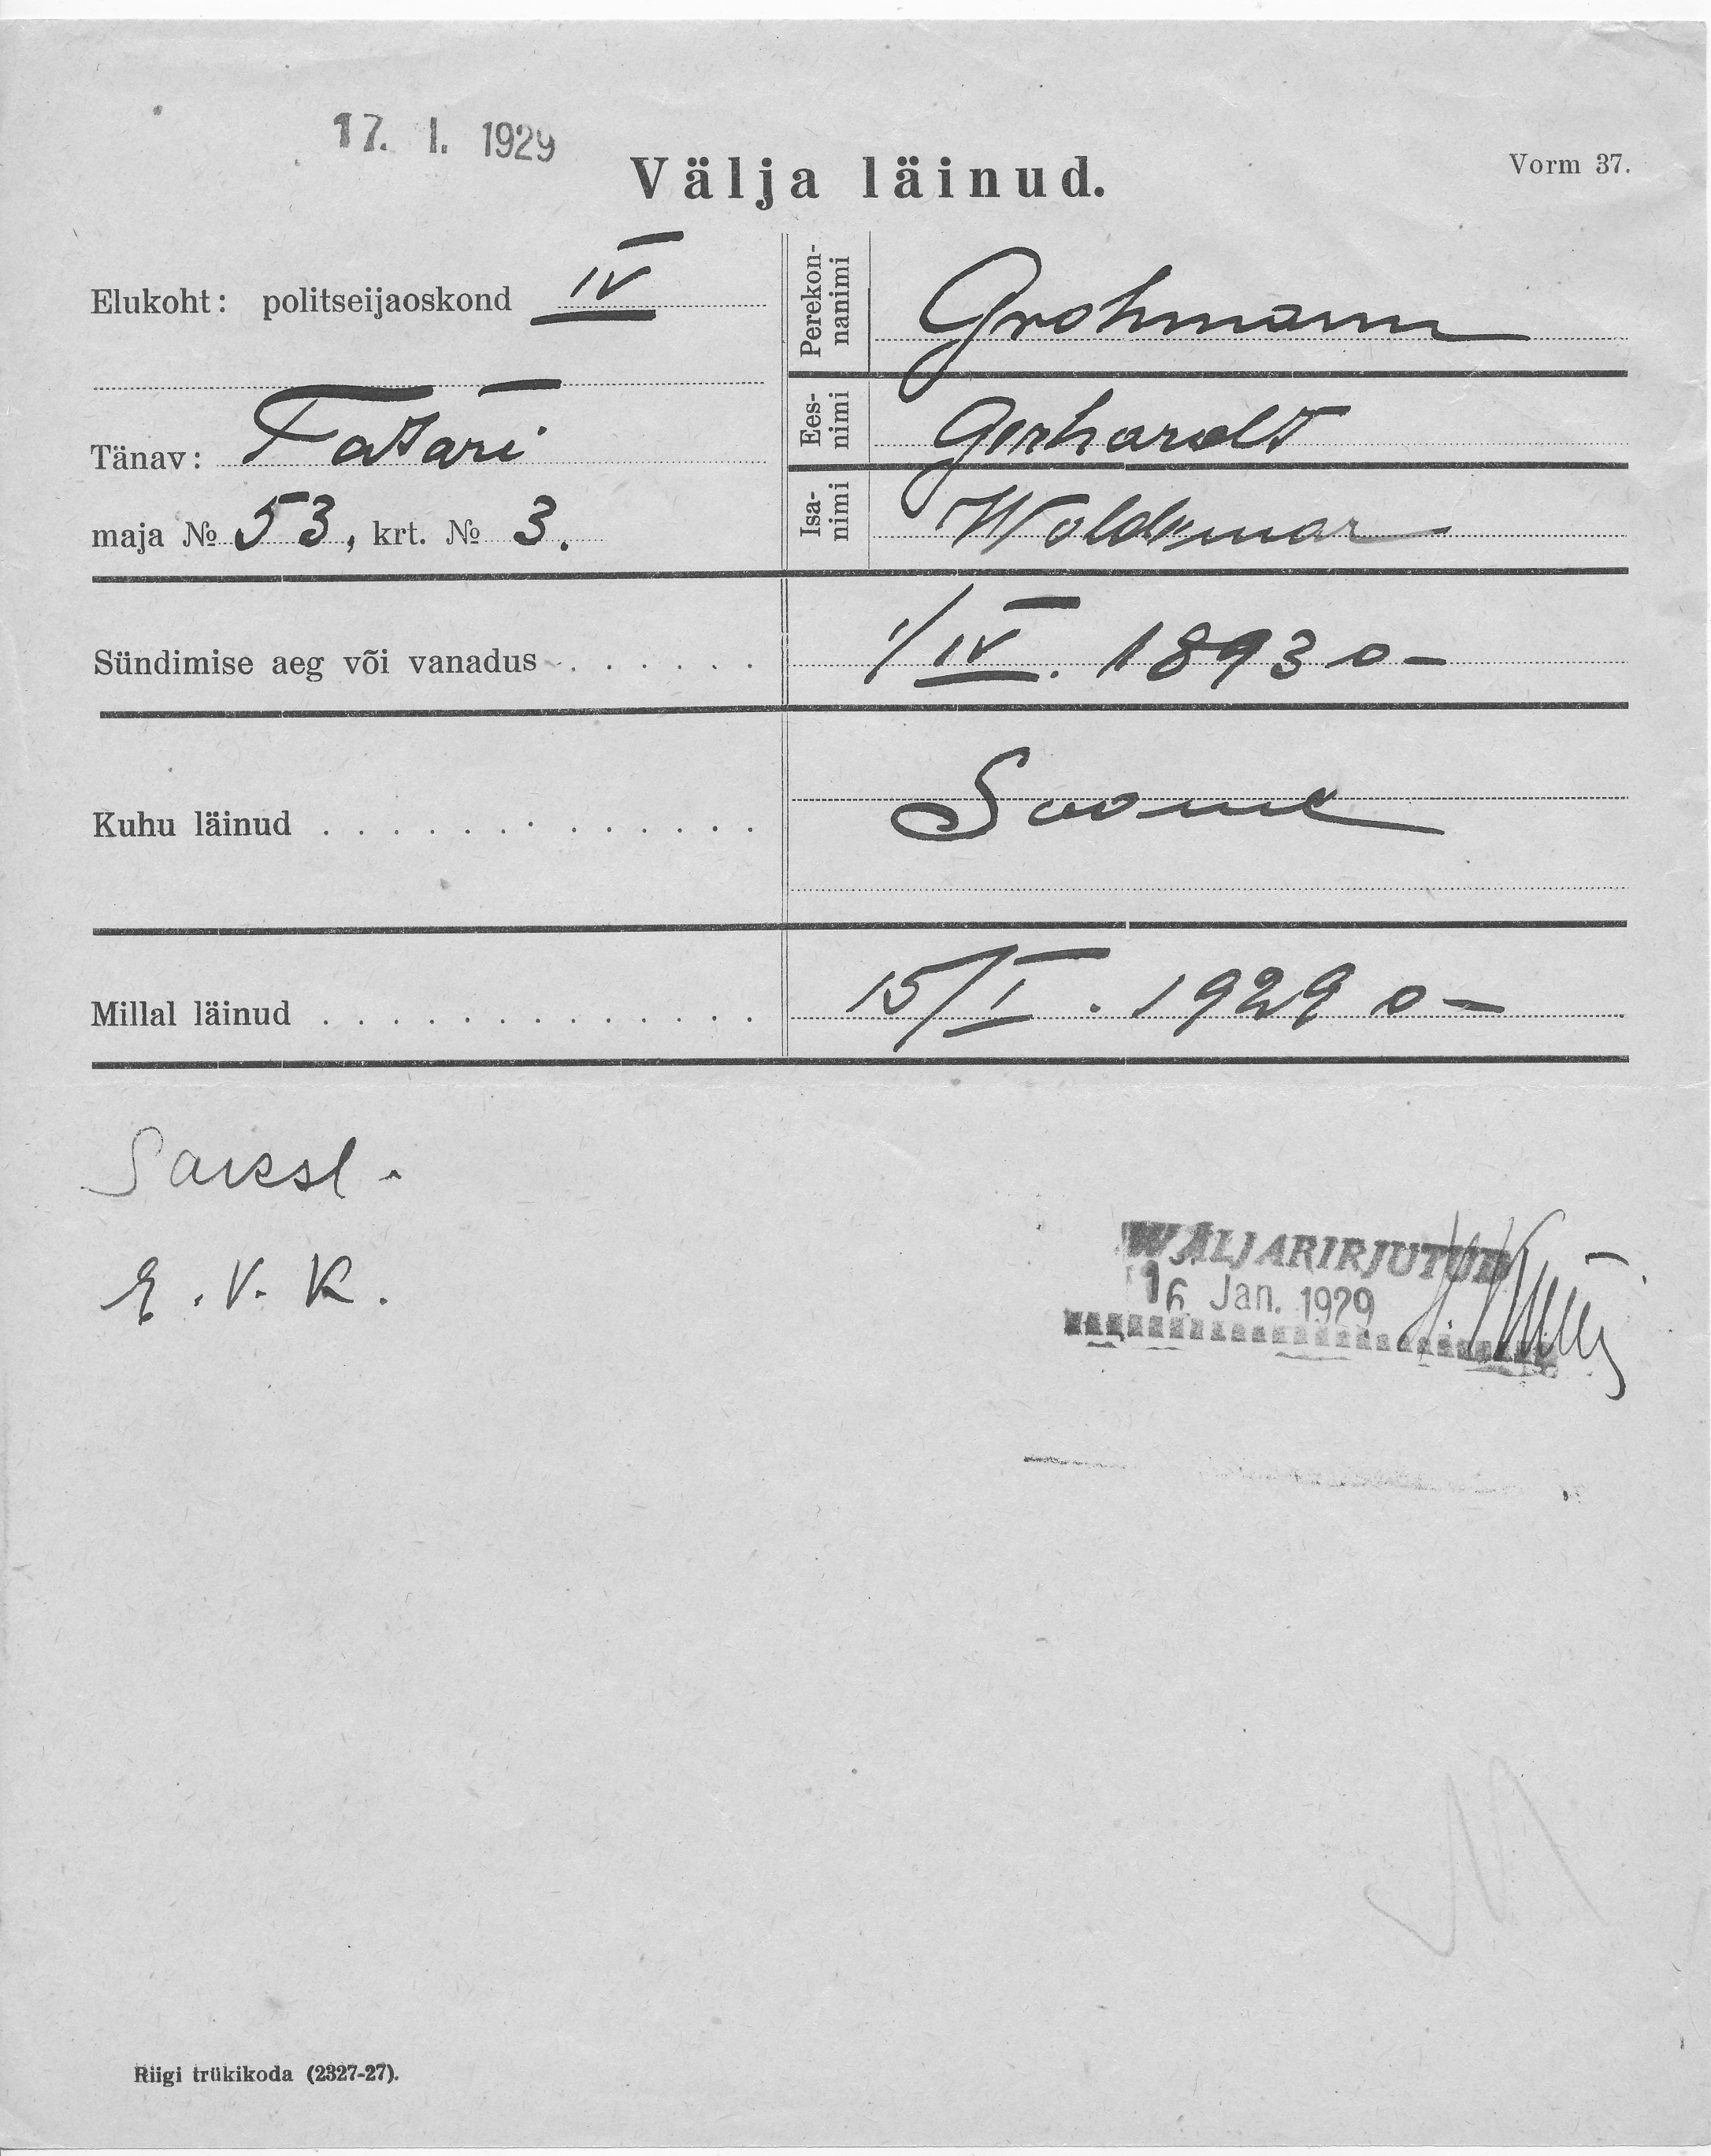 17. I. 1929
Vorm 37.
Välja läinud.
Elukoht: politseijaoskond IV
Tänav: Tatari
maja № 53, krt. № 3.
Perekon-
nanimi
Grohmann
Ees-
nimi
Gerhardt
Isa-
nimi
Woldemar
Sündimise aeg või vanadus 1/IV. 1893 a –
Kuhu läinud Soome
Millal läinud 15/I. 1929 a –
Saksl.
E. V. K.
WÄLJAKIRJUTUD
16 Jan. 1929
Riigi trükikoda (2327-27).